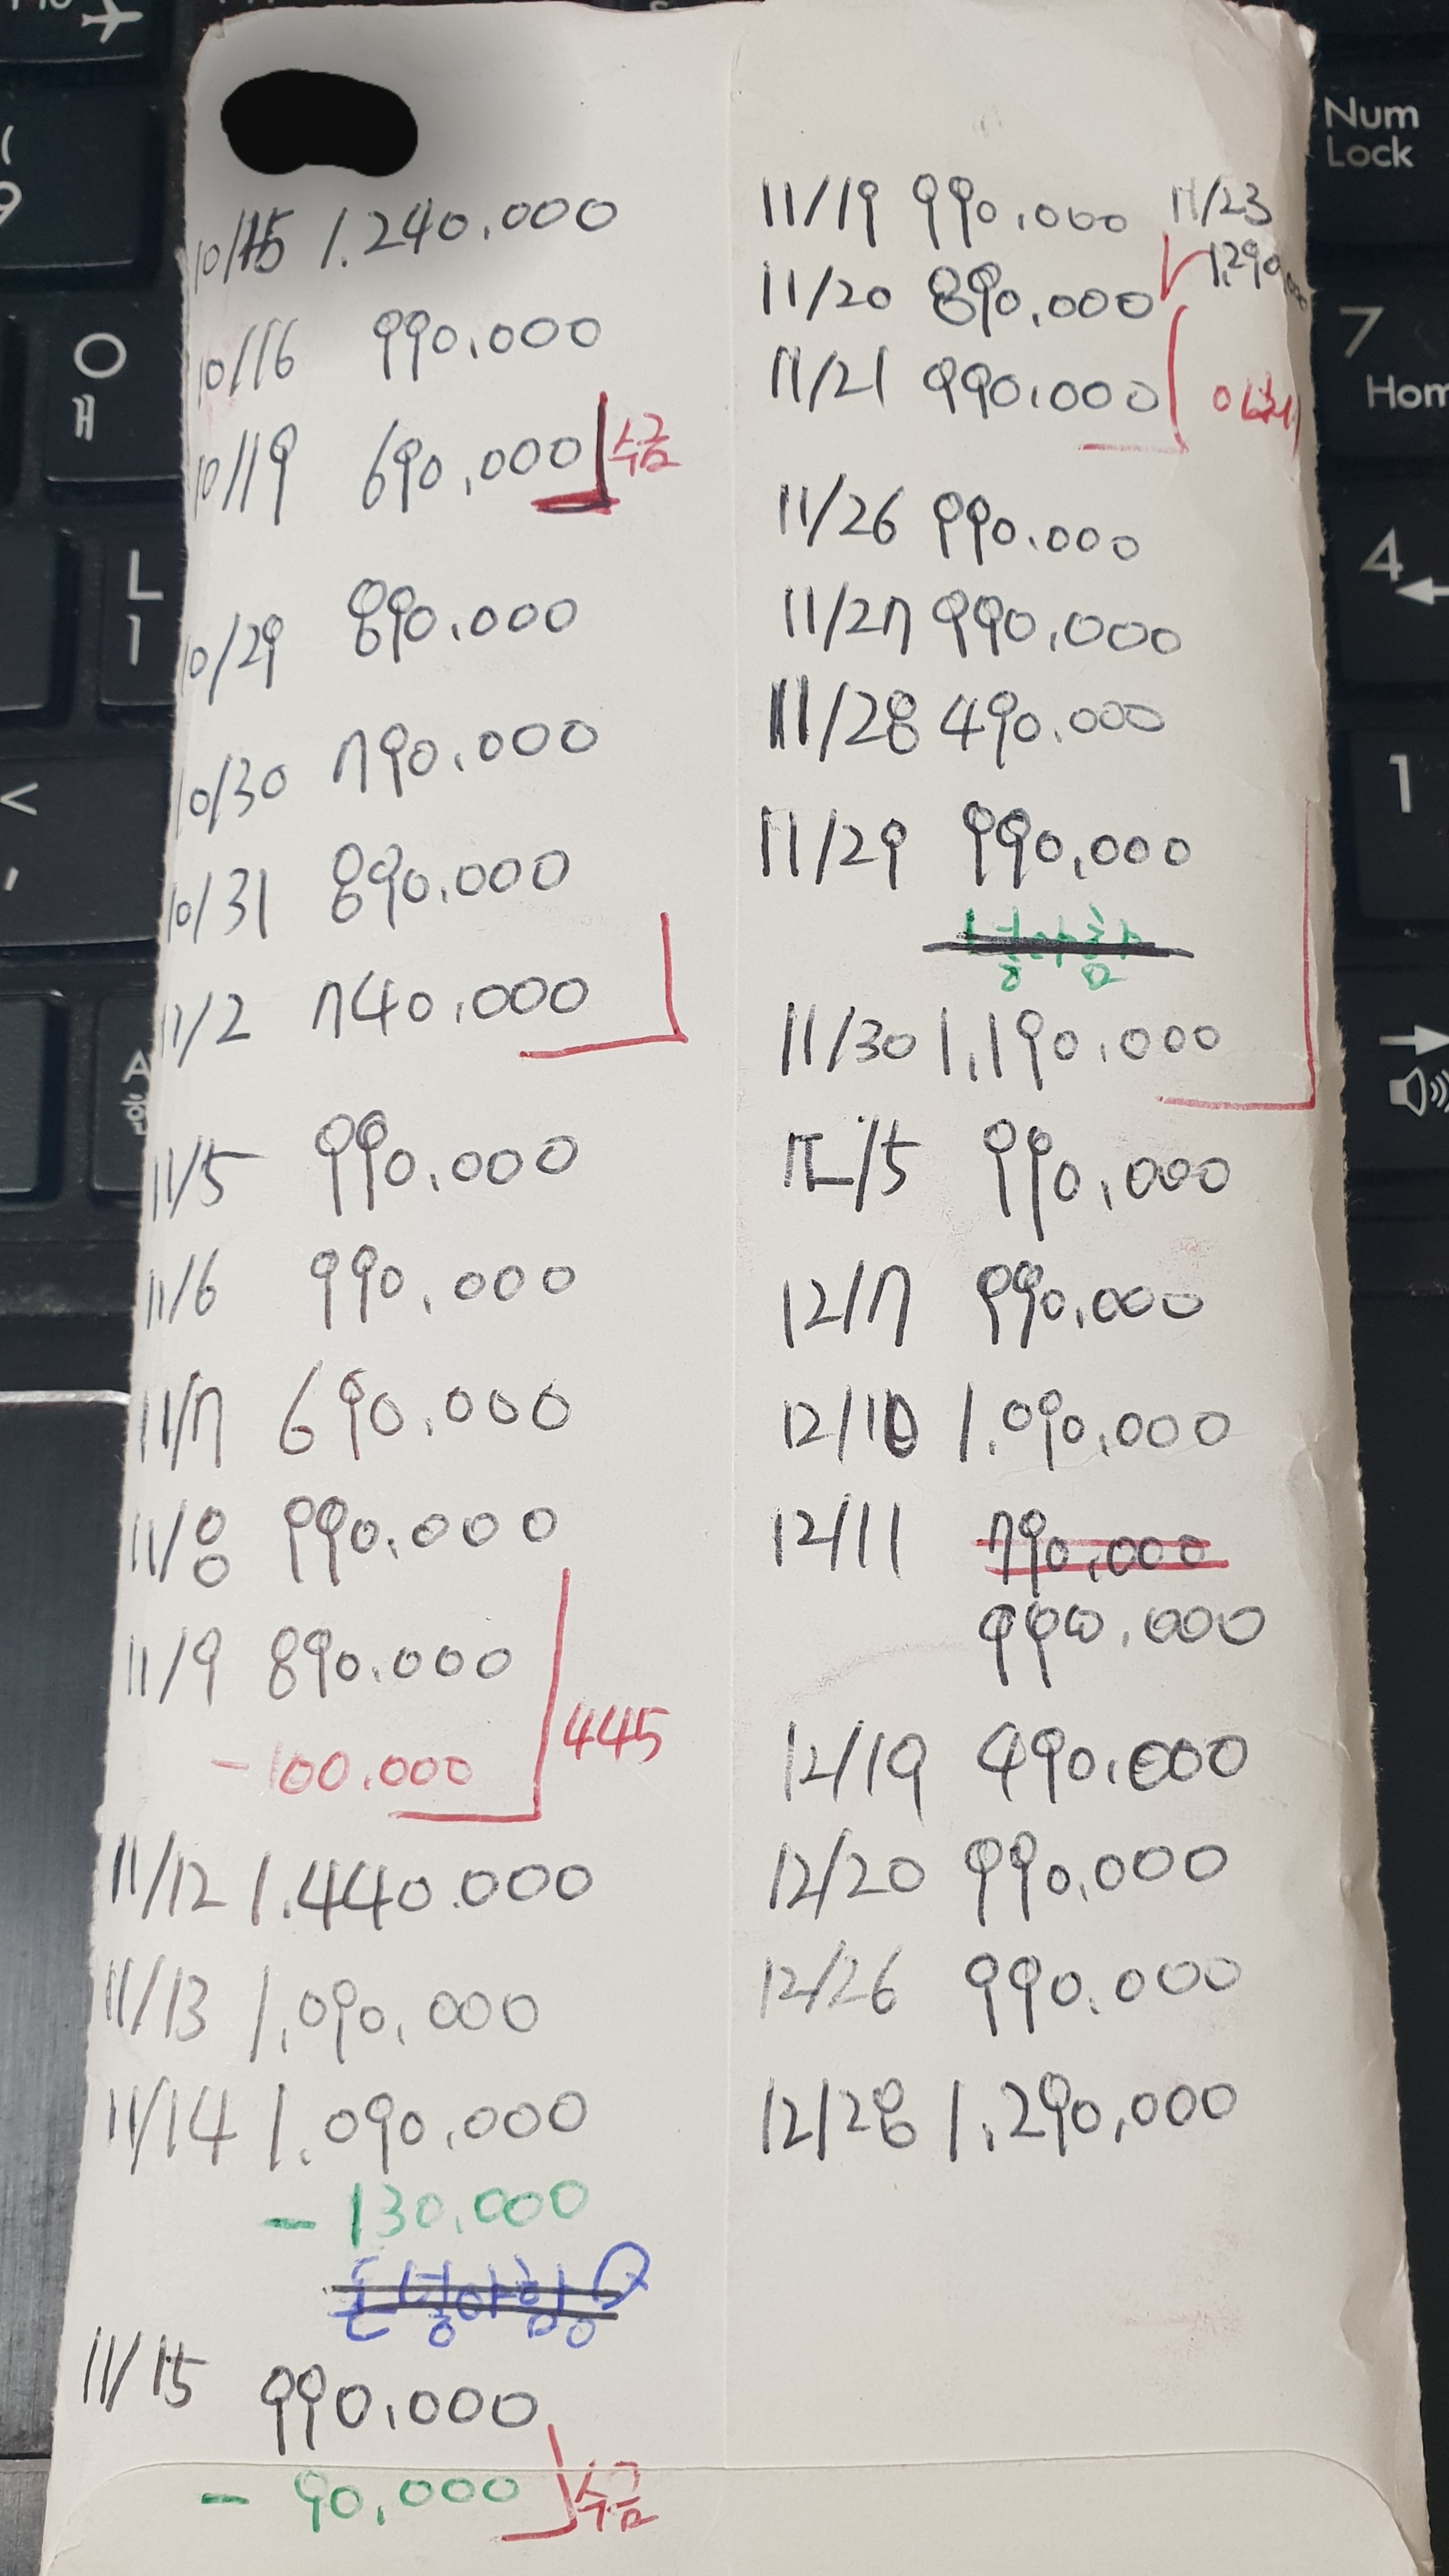 10/15 1.240.000
10/16 990.000
10/19 690.000 수금
10/29 890.000
10/30 790.000
10/31 890.000
11/2 740.000
11/5 990.000
11/6 990.000
11/7 690.000
11/8 990.000
11/9 890.000
-100.000 445
11/12 1.440.000
11/13 1.090.000
11/14 1.090.000
- 130.000
돈 넣야함
11/15 990.000
- 90.000 수금
11/19 990.000 11/23
1,290,000
11/20 890.000
11/21 990.000
11/26 990.000
11/27 990.000
11/28 490.000
11/29 990,000
11/30 1,190.000
12/5 990,000
12/7 990.000
12/10 1.090.000
12/11 790,000
990.000
12/19 490.000
12/20 990.000
12/26 990.000
12/28 1.290,000
Num
Lock
7
Hom
4
1
ㅇ
ㅐ
ㅣ
<
,
9